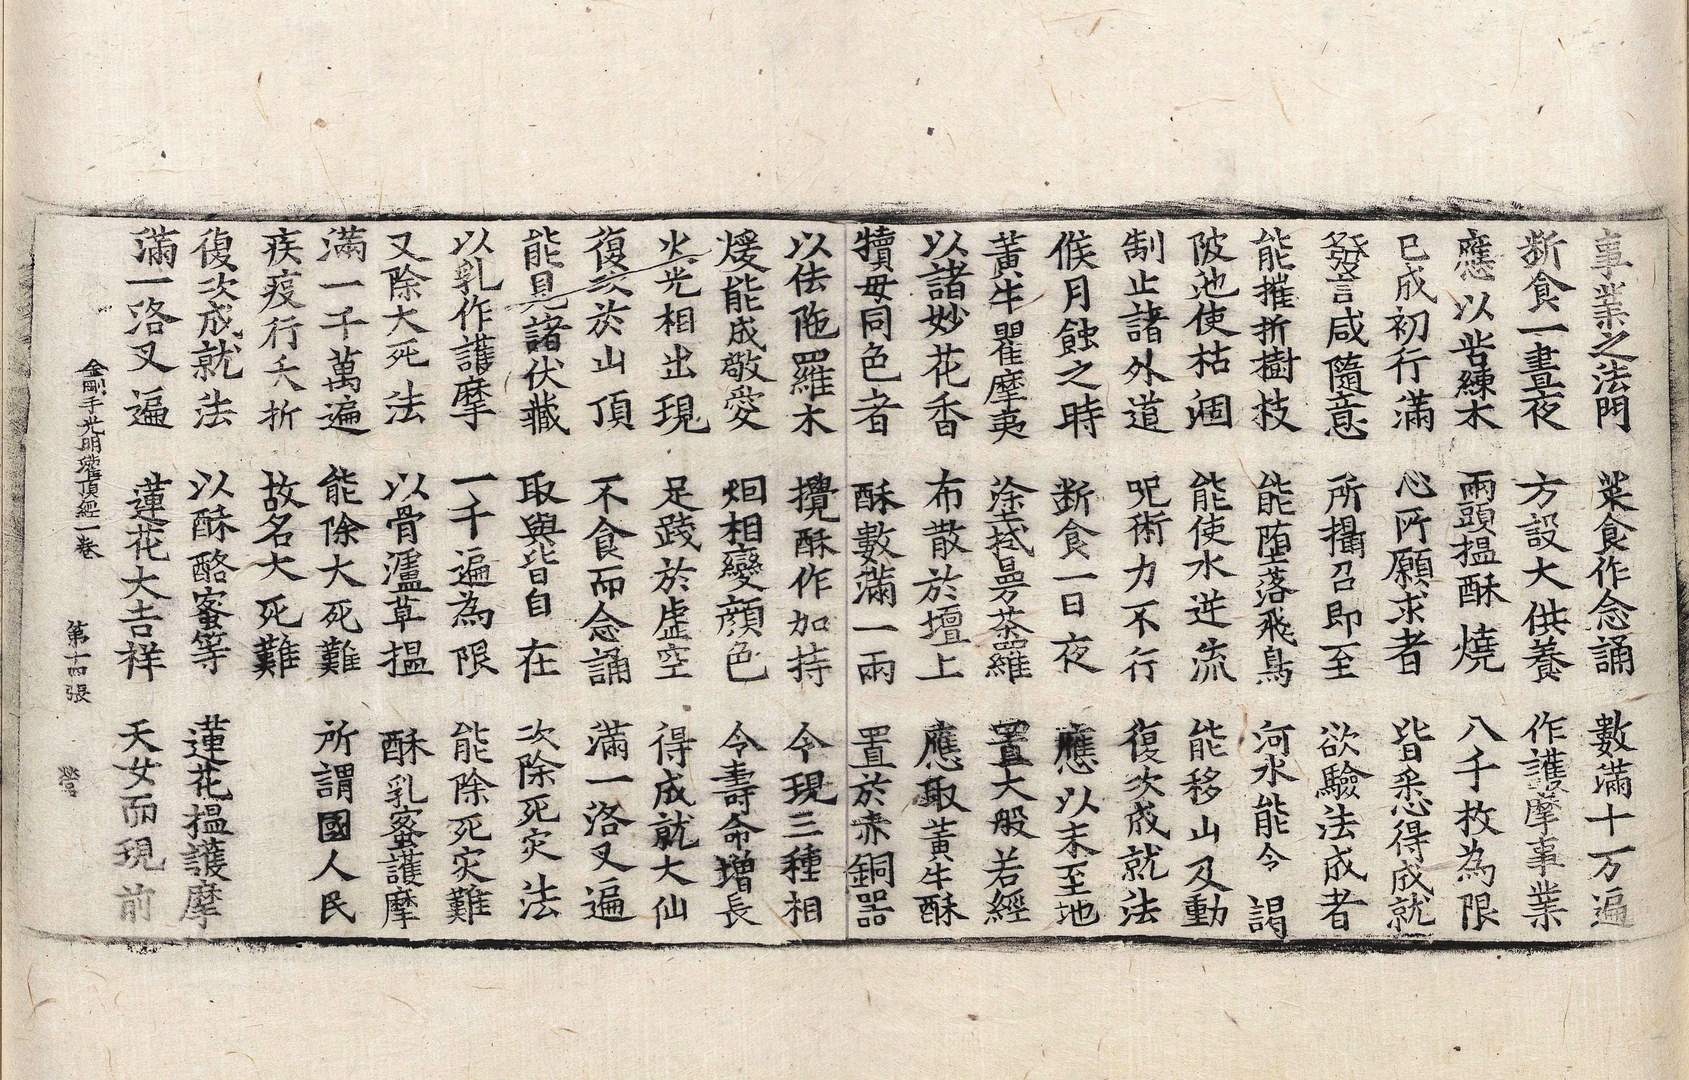 事業之法門　菜食作念誦　數滿十万遍
斷食一晝夜　方設大供養　作護摩事業
應以苦練木　兩頭搵酥燒　八千枚為限
已成初行滿　心所願求者　皆悉得成就
發言咸隨意　所攝召即至　欲驗法成者
能摧折樹枝　能堕落飛鳥　河水能令謁
陂池使枯涸　能使水逆流　能移山及動
制止諸外道　呪術力不行　復次成就法
候月蝕之時　斷食一日夜　應以未至地
黃牛瞿摩夷　塗拭曼荼羅　置大般若經
以諸妙花香　布散於壇上　應取黃牛酥
犢母同色者　酥數滿一兩　置於赤銅器
以佉陁羅木　攪酥作加持　令現三種相
煖能成敬愛　烟相變顔色　令壽命增長
火光相出現　足踐於虛空　得成就大仙
復次於山頂　不食而念誦　滿一洛叉遍
能見諸伏藏　取與皆自在　次除死灾法
以乳作護摩　一千遍為限　能除死灾難
又除大死法　以骨瀘草搵　酥乳蜜護摩
滿一千萬遍　能除大死難　所謂國人民
疾疫行夭折　故名大死難
復次成就法　以酥酪蜜等　蓮花搵護摩
滿一洛叉遍　蓮花大吉祥　天女而現前
金剛手光明灌頂經一卷　第十四張